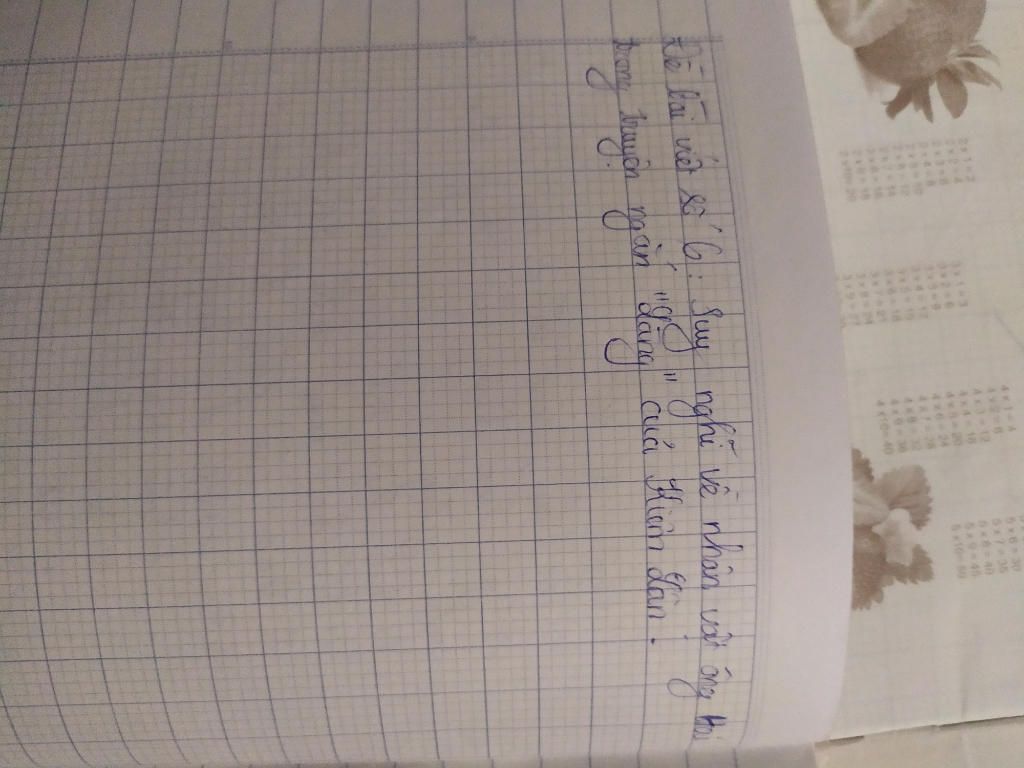 Đề bài viết số 6: Suy nghĩ về nhân vật ông Hai
trong truyện ngắn "Làng" của Kim Lân.